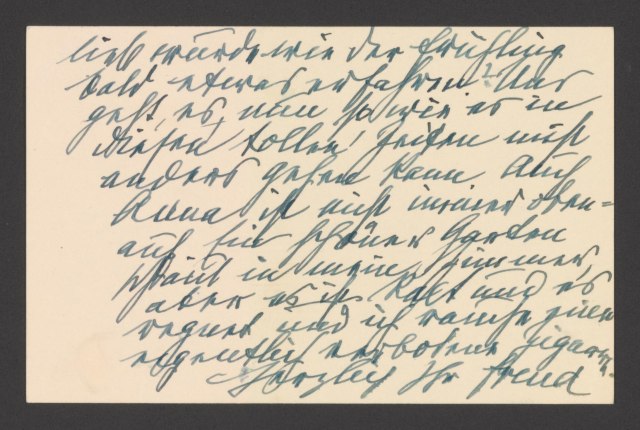 lieb würde wie der Frühling
bald etwas erfahren? Uns
geht es nun so wie es in
diesen tollen Zeiten nicht
anders gehen kann. Auch
Anna ist nicht immer oben=
auf. Ein schöner Garten
schaut in mein Zimmer,
aber es ist kalt und es
regnet und ich rauche eine
eigentlich verbotene Zigarre.
Herzlich Ihr Freud